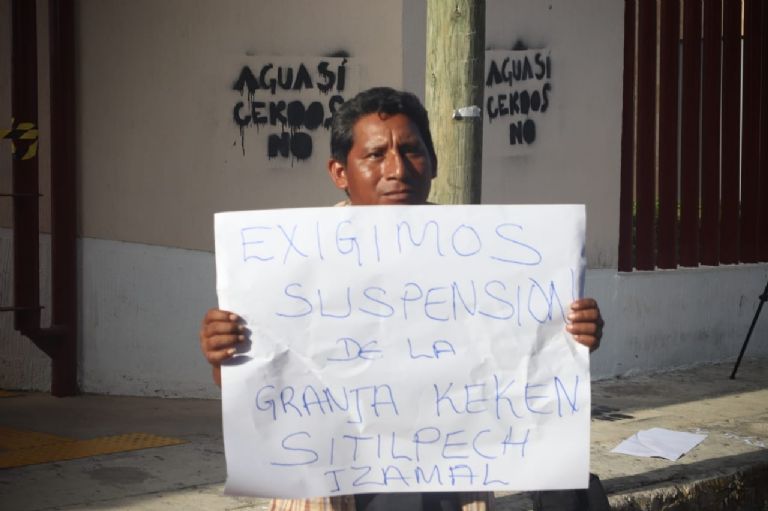 AGUA SÍ
CERDOS
NO
AGUA SÍ
CERDOS
NO
EXIGIMOS
SUSPENSION
DE LA
GRANJA KEKEN
SITILPECH
IZAMAL